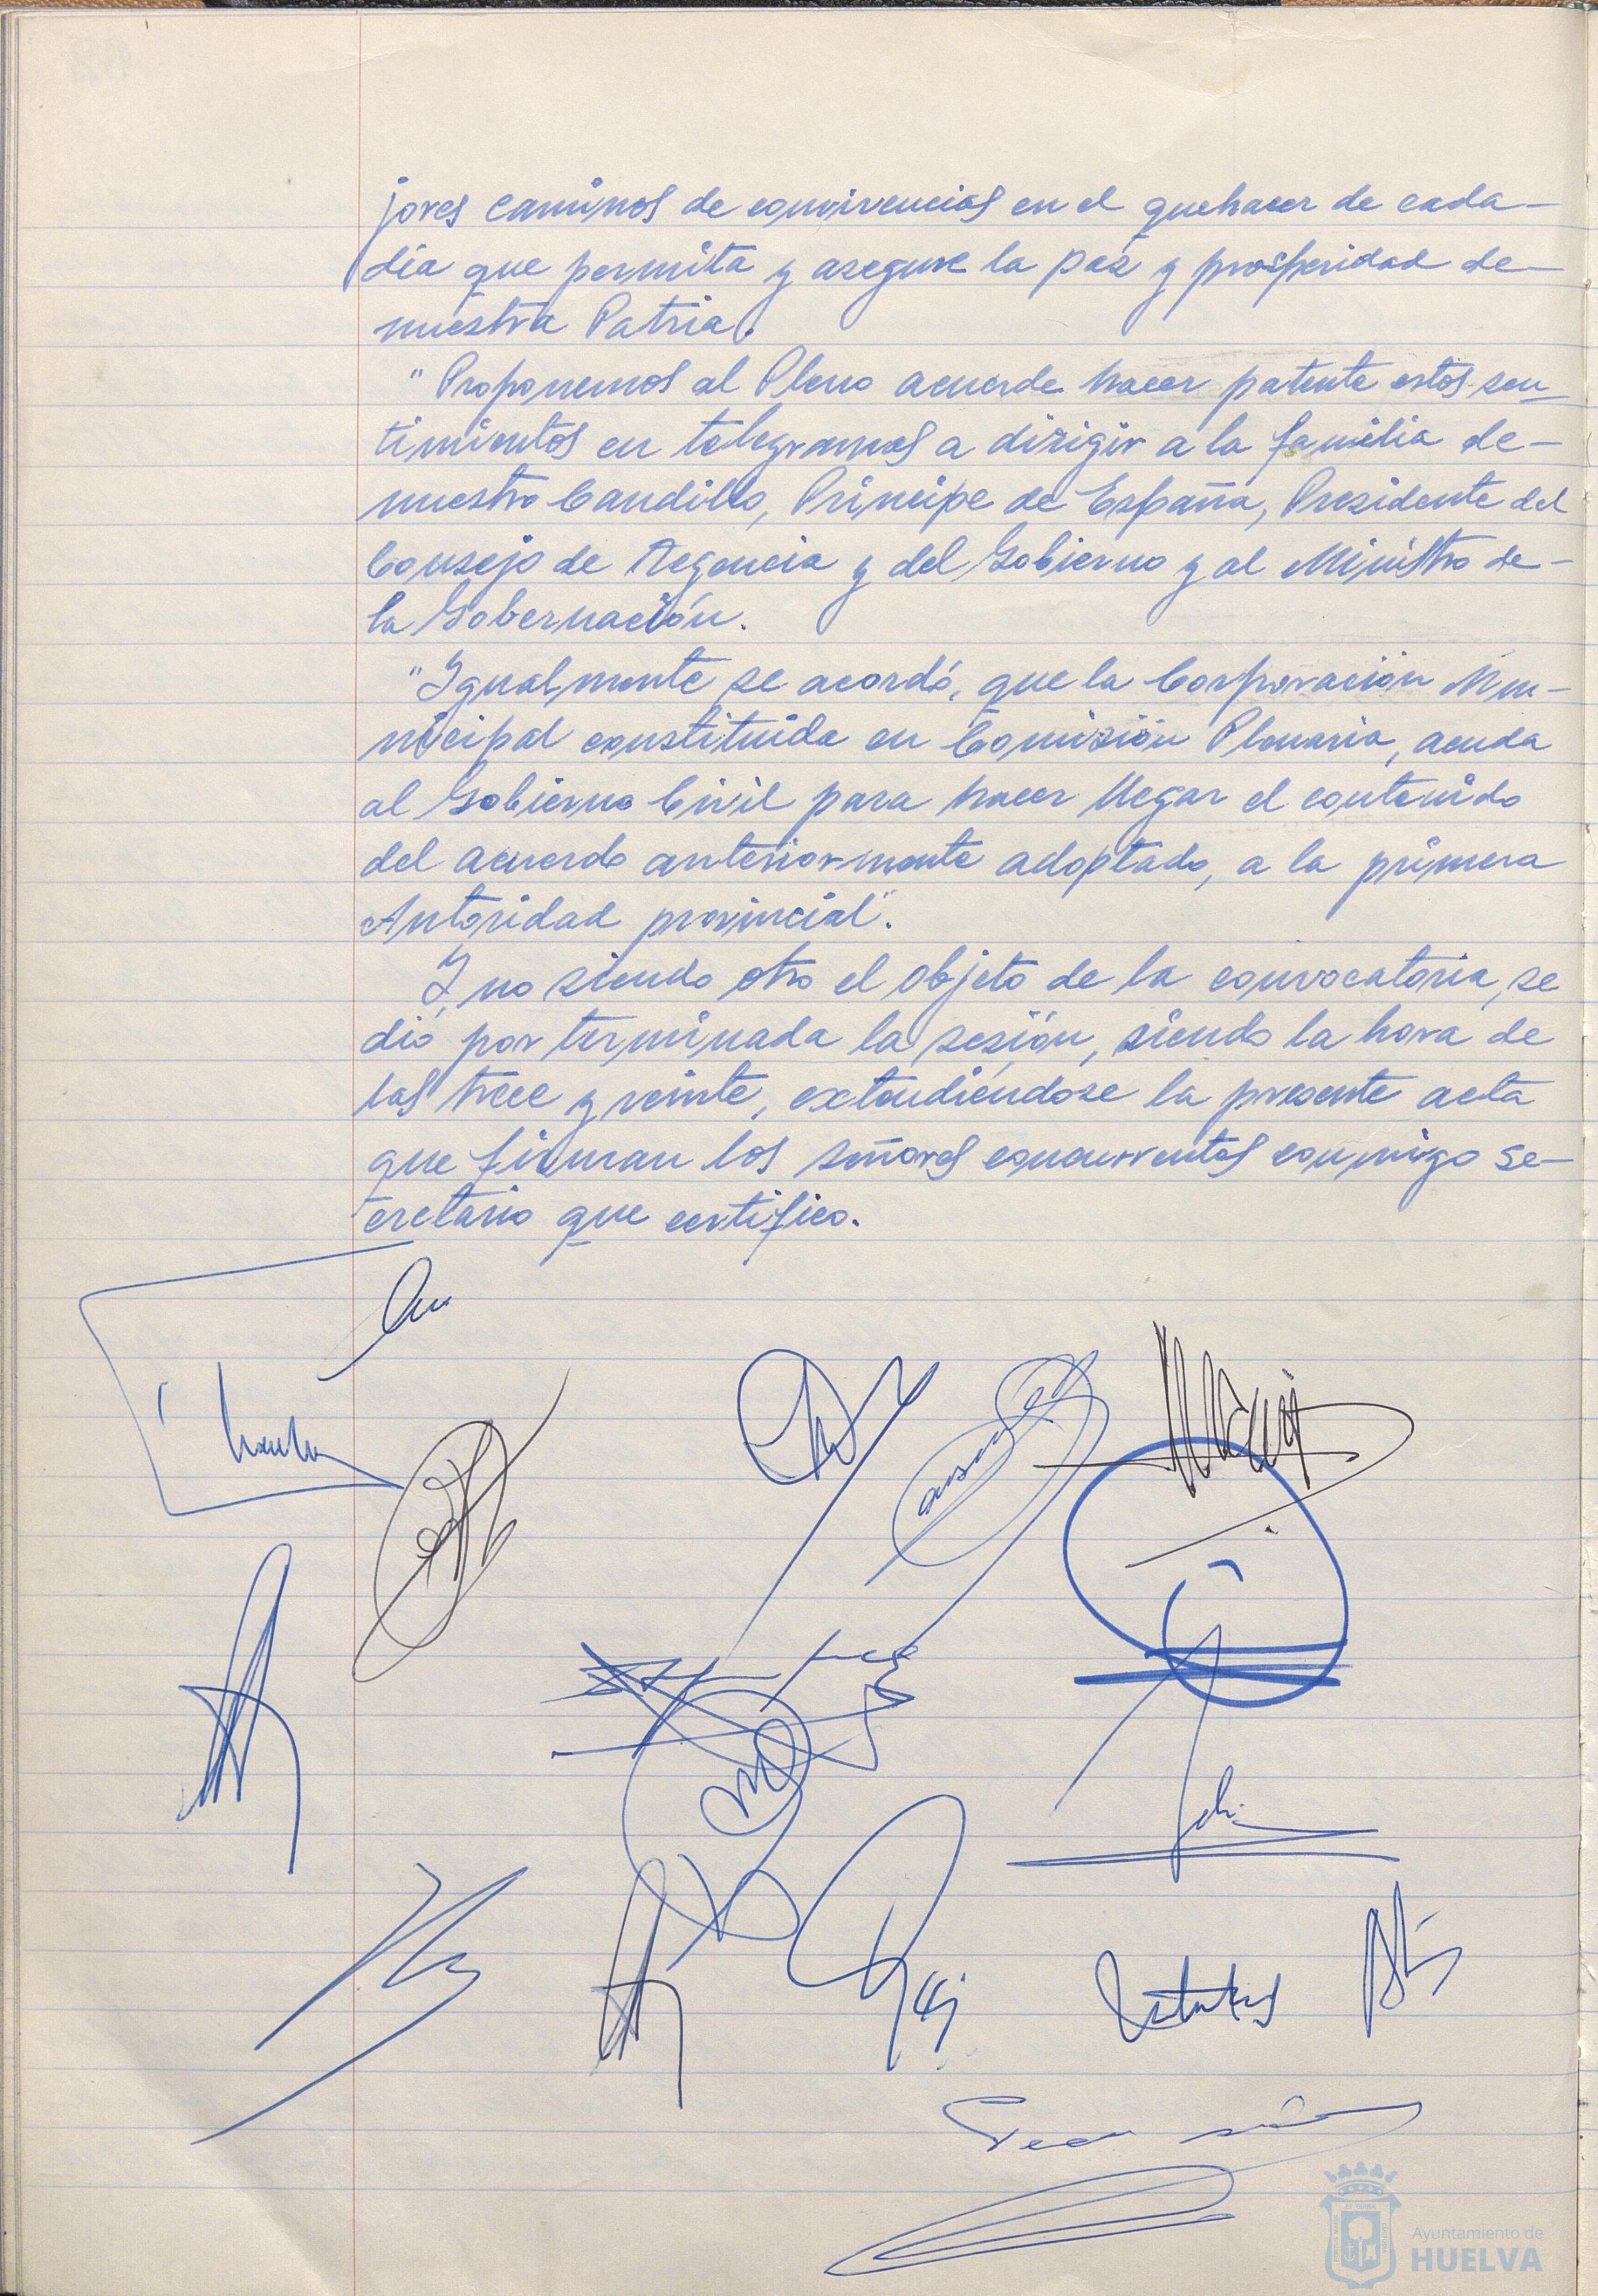 jores caminos de convivencias en el quehacer de cada-
día que permita y asegure la paz y prosperidad de-
nuestra Patria.
"Proponemos al Pleno acuerde hacer patente estos sen-
timientos en telegramas a dirigir a la familia de-
nuestro Caudillo, Príncipe de España, Presidente del
Consejo de Regencia y del Gobierno y al Ministro de-
la Gobernación.
"Igualmente se acordó, que la Corporación Mu-
nicipal constituida en Comisión Plenaria, acuda
al Gobierno Civil para hacer llegar el contenido
del acuerdo anteriormente adoptado, a la primera
Autoridad provincial".
Y no siendo otro el objeto de la convocatoria, se
dió por terminada la sesión, siendo la hora de
las trece y veinte, extendiéndose la presente acta
que firman los señores concurrentes conmigo se-
cretario que certifico.
Ayuntamiento de
HUELVA